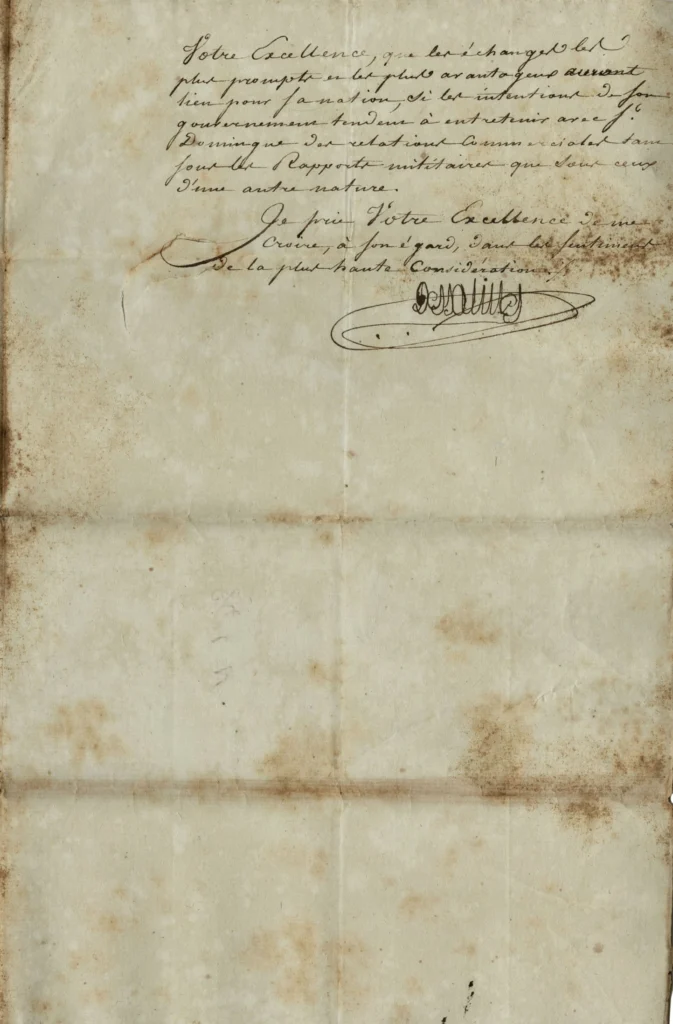 Votre Excellence, que les échanges les
plus prompts et les plus avantageux auront
lieu pour sa nation, si les intentions de son
gouvernement tendent à entretenir avec St.
Domingue des relations Commerciales tant
sous les Rapports militaires que sous ceux
d'une autre nature.
Je prie Votre Excellence de me
Croire, à son égard, dans les sentimens
de la plus haute Considération.